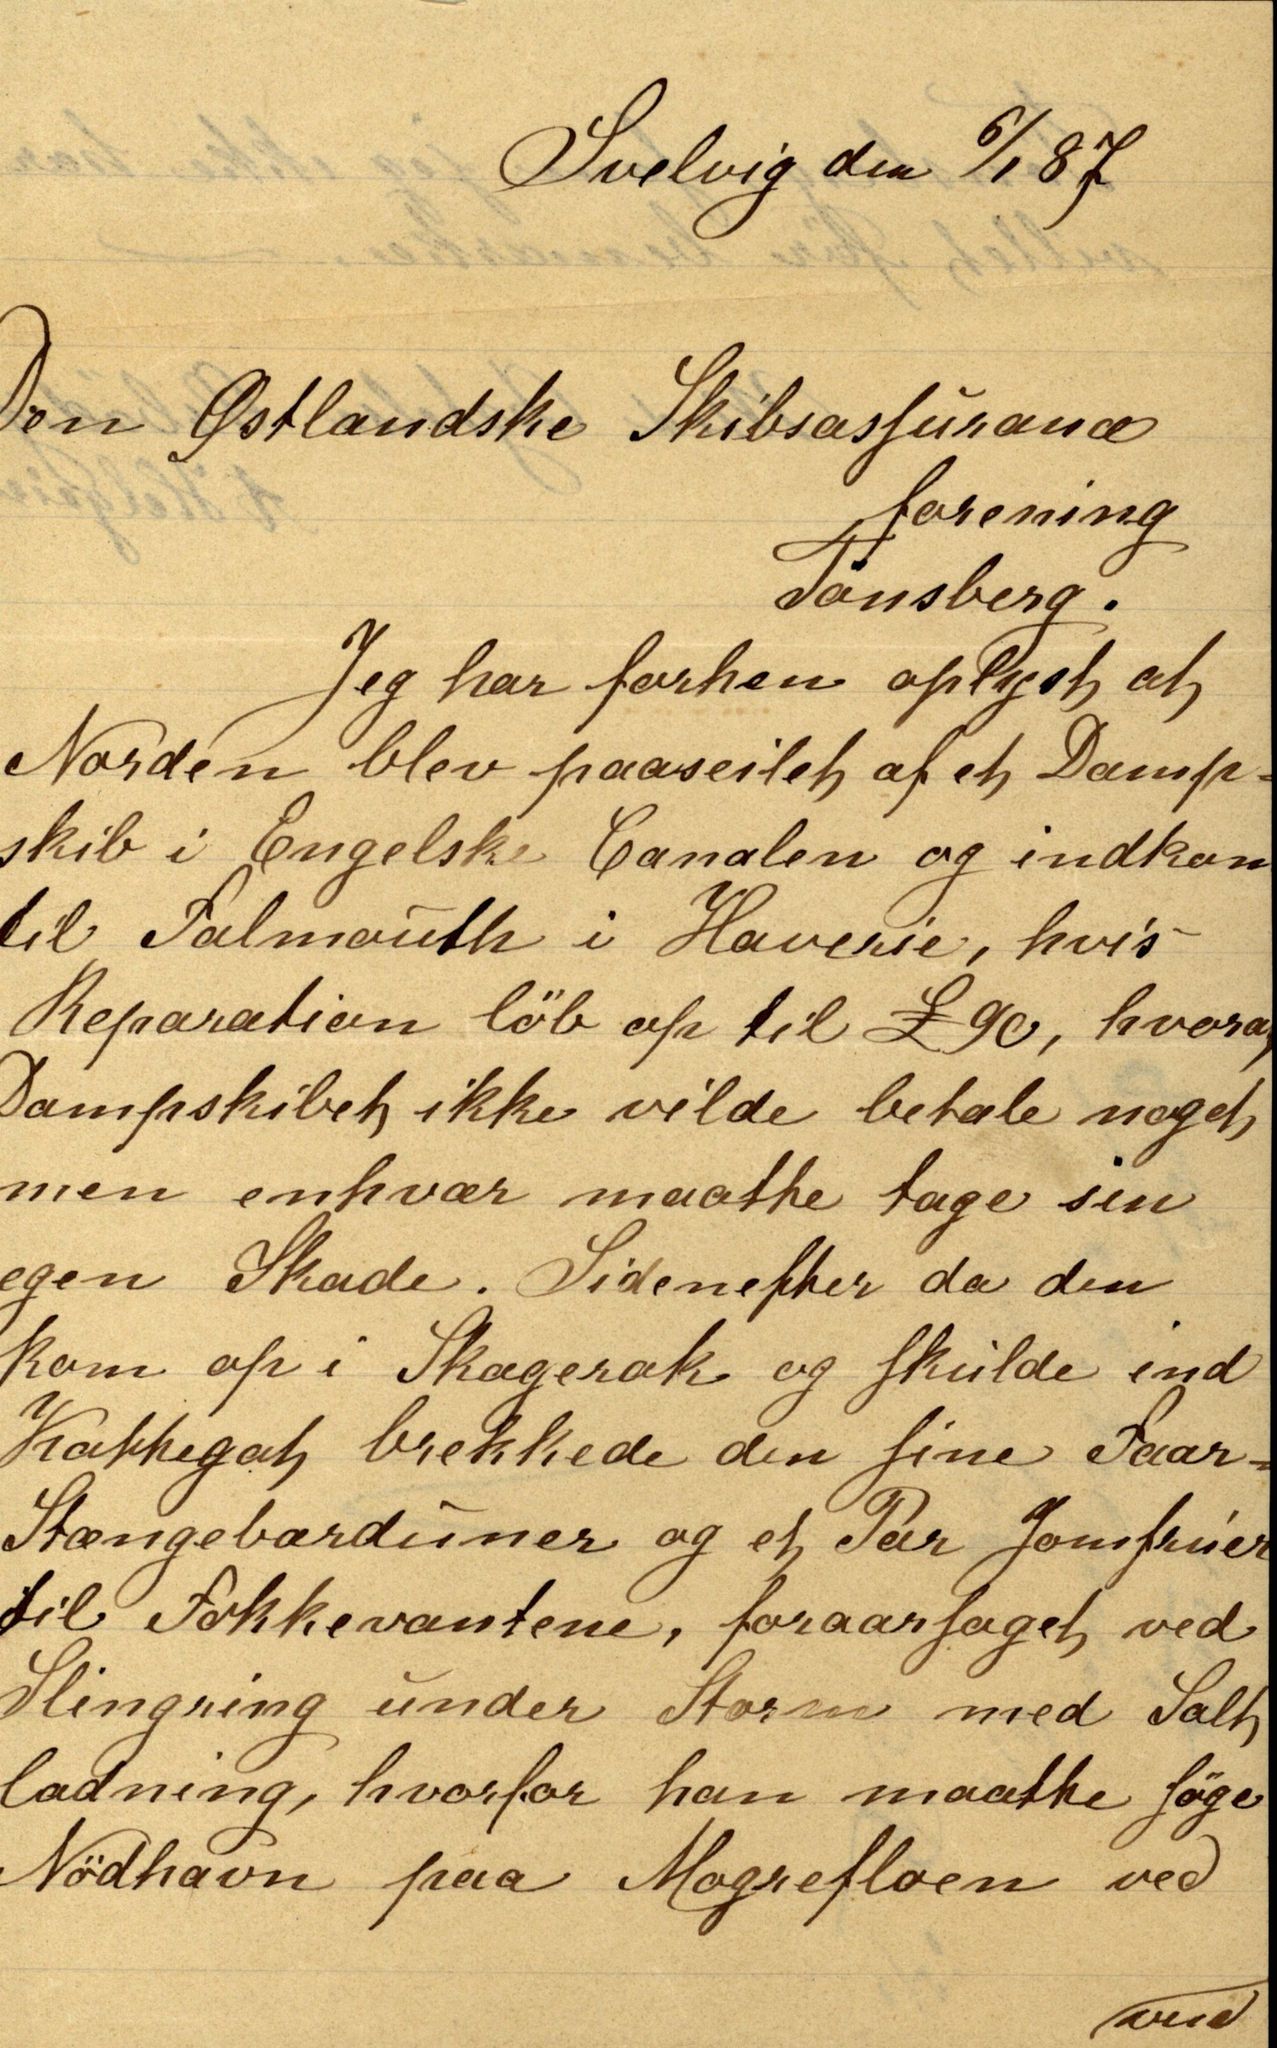 Svelvig den 6/1 87
Den Østlandske Skibsassurance
forening
Tönsberg.
Jeg har forhen oplyst at
Norden blev paaseilet af et Damp-
skib i Engelske Canalen og indkom
til Falmouth i Haverie, hvis
Reparation löb op til £ 90, hvoraf
Dampskibet ikke vilde betale noget
men enhvær maatte tage sin
egen Skade. Sidenefter da den
kom op i Skagerak og skulde ind
Kattegat brekkede den sine Faar-
Stængebarduner og et Par Jomfruer
til Fokkevantene, foraarsaget ved
Slingring under Storm med Salt
ladning, hvorfor han maatte söge
Nödhavn paa Mogrefloen ved
vend